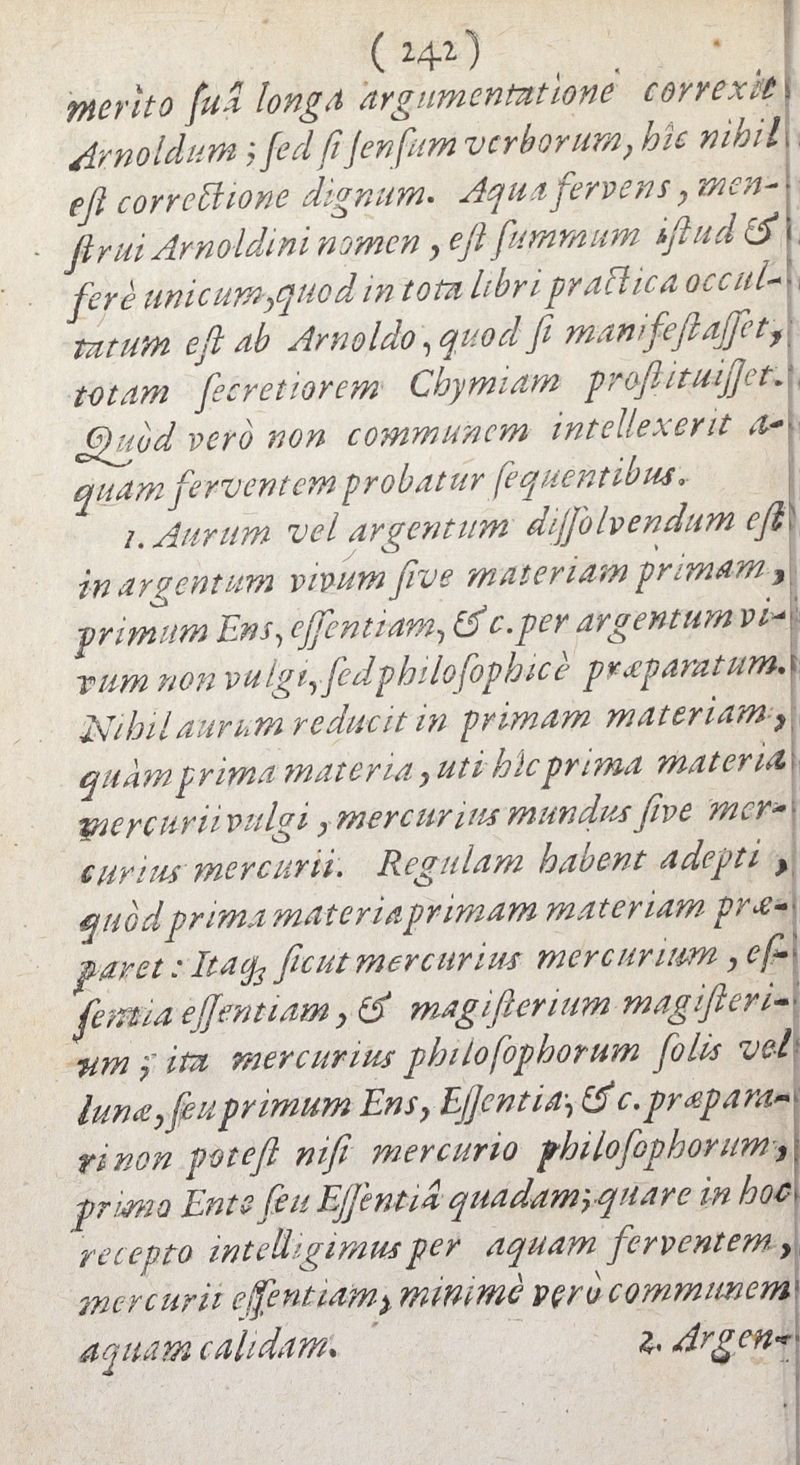 ( 242 )
merito ſuâ longa argumentatione correxit
Arnoldum ; ſed ſi ſenſum verborum, hîc nihil
eſt correctione dignum. Aqua fervens, men-
ſtrui Arnoldini nomen, eſt ſummum iſtud &
ferè unicum, quod in tota libri practica occul-
tatum eſt ab Arnoldo, quod ſi manifeſtaſſet,
totam ſecretiorem Chymiam proſtituiſſet.
Quòd verò non communem intellexerit a-
quam ferventem probatur ſequentibus.
1. Aurum vel argentum diſſolvendum eſt
in argentum vivum ſive materiam primam,
primum Ens, eſſentiam, &c. per argentum vi-
vum non vulgi, ſed philoſophicè præparatum.
Nihil aurum reducit in primam materiam,
quàm prima materia, uti hîc prima materia
mercurii vulgi, mercurius mundus ſive mer-
curius mercurii. Regulam habent adepti,
quòd prima materia primam materiam præ-
paret : Itaq; ſicut mercurius mercurium, eſ-
ſentia eſſentiam, & magiſterium magiſteri-
um ; ita mercurius philoſophorum ſolis vel
lunæ, ſeu primum Ens, Eſſentia, &c. præpara-
ri non poteſt niſi mercurio philoſophorum,
primo Ente ſeu Eſſentiâ quadam; quare in hoc
recepto intelligimus per aquam ferventem,
mercurii eſſentiam, minimè verò communem
aquam calidam. 2. Argen-